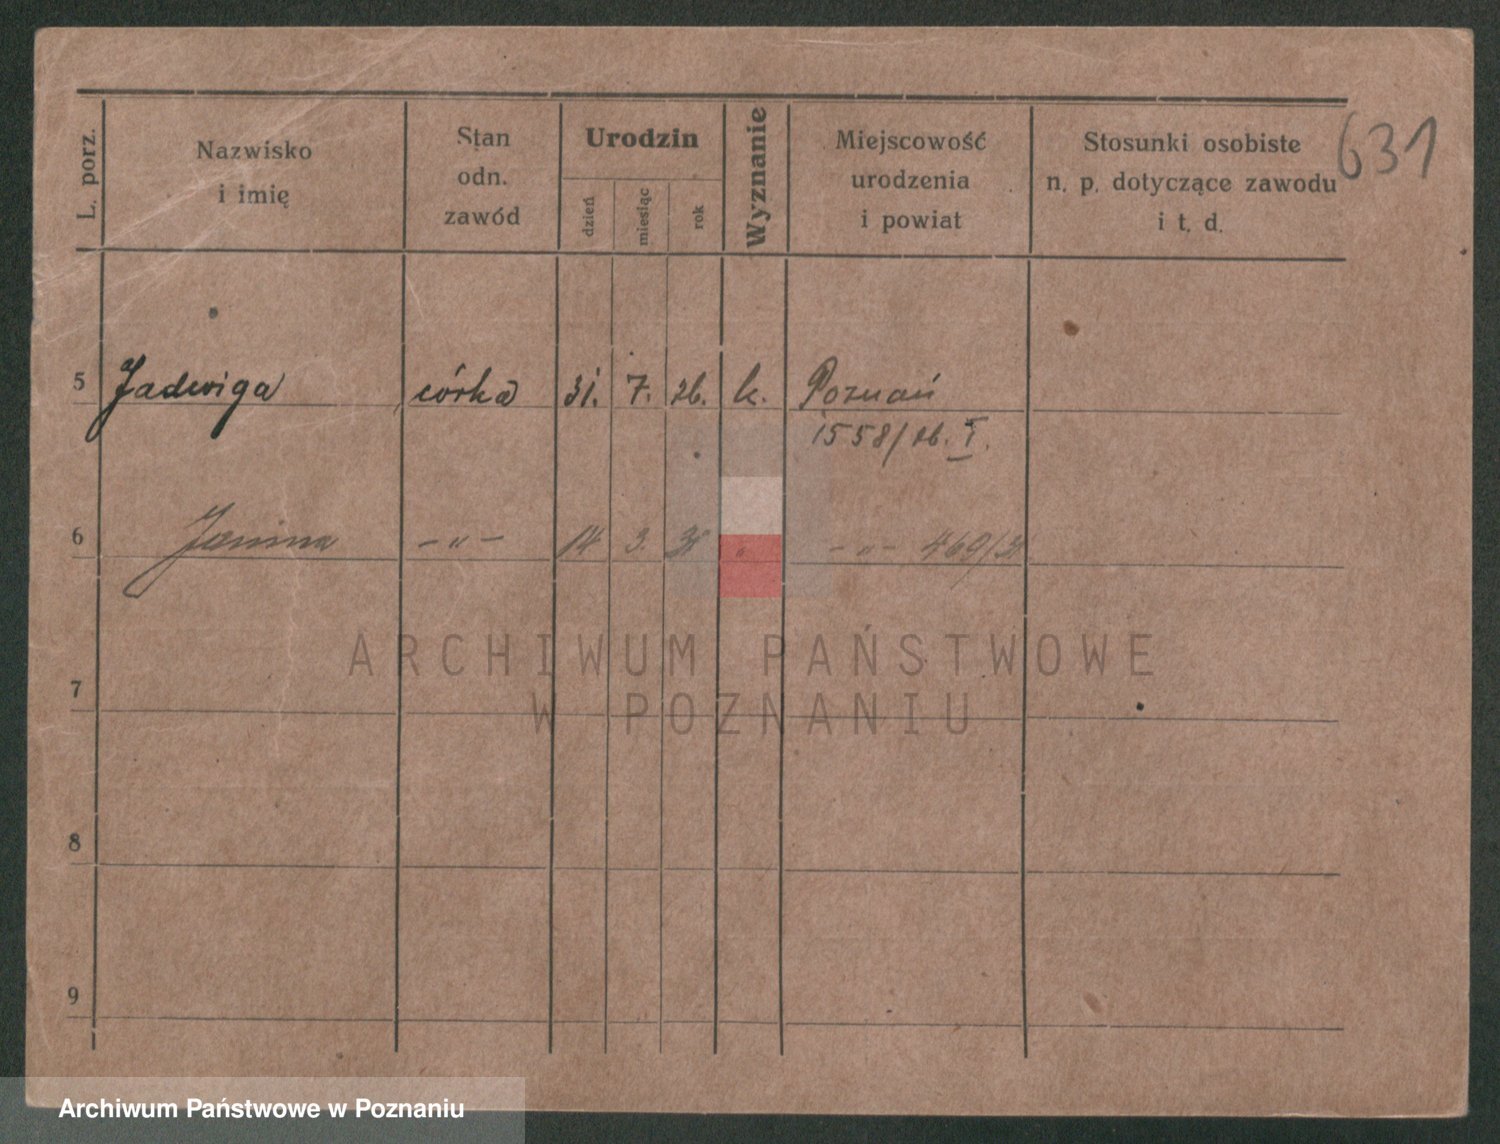 631
L. porz.
Nazwisko
i imię
Stan
odn.
zawód
Urodzin
dzień
miesiąc
rok
Wyznanie
Miejscowość
urodzenia
i powiat
Stosunki osobiste
n. p. dotyczące zawodu
i t. d.
5 Jadwiga córka 31. 7. 26. k. Poznań
1558/26. I.
6 Janina - " - 14 3. 31 " - " - 469/31
ARCHIWUM PAŃSTWOWE
W POZNANIU
7
8
9
Archiwum Państwowe w Poznaniu